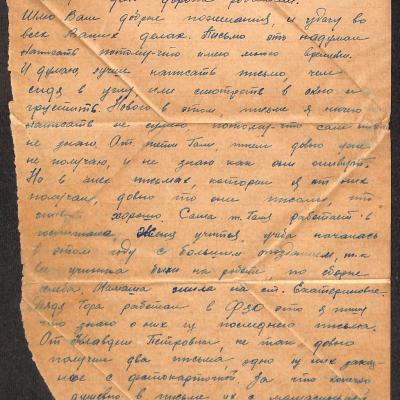 дорогие
Шлю Вам добрые пожелания, и удачу во
всех Ваших делах. Письмо это надумал
написать потому-что имею много времени.
И думаю, лучше написать письмо, чем
сидя в углу или смотреть в окно и
грустить. Нового в этом, письме я ничего
написать не потому-что сам
не знаю. От тети Гали, писем давно уже
не получаю, и не знаю как они живут.
Но в тех письмах, которые я от них
получал, давно они писали, что
живут хорошо. Саша т. Галя работает в
Женя учится учеба началась
в этом году с большим опозданием, т.к
все ученики были на работе, по сборке
хлеба. Мамаша на ст. Екатериновке
дядя Гора работает в ФЗО это я пишу
что знаю о них из последнего письма.
От Клавдии Петровны, не так давно
получил два письма одно из них
с фотокарточкой, за что конечно
в письме их с